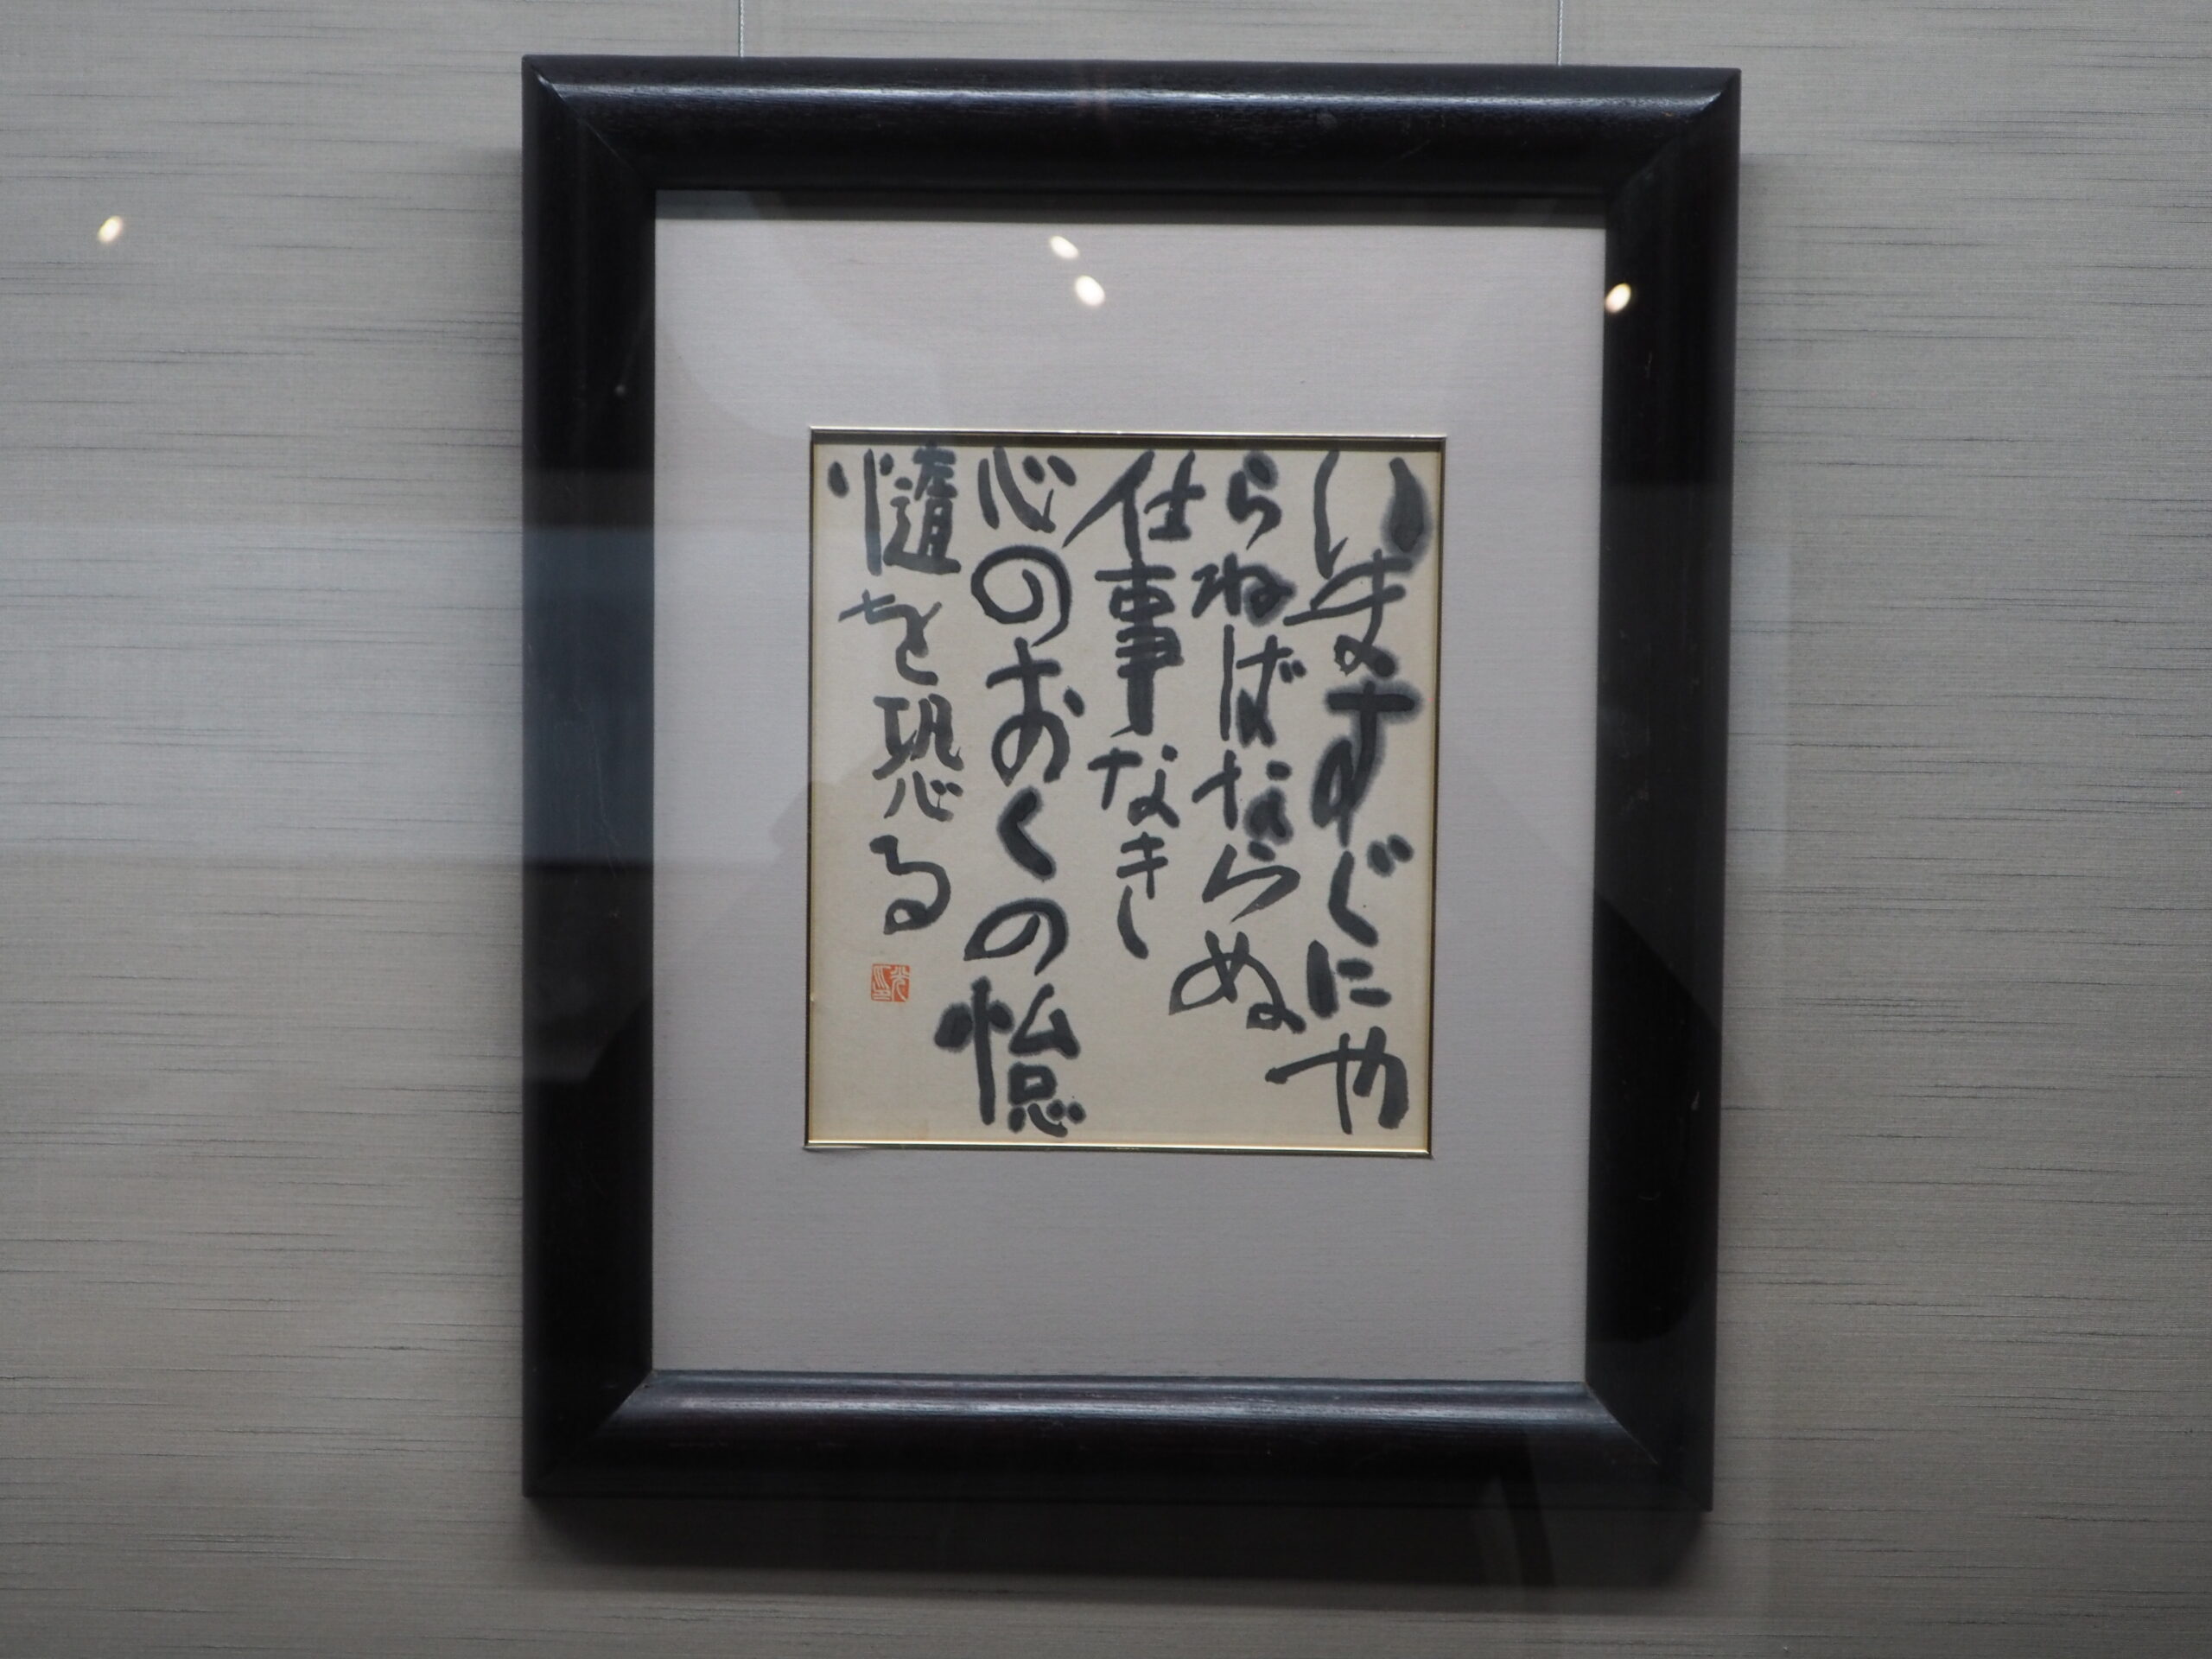 いますぐにや
らねばならぬ
仕事なきし
心のおくの怠
惰を恐る